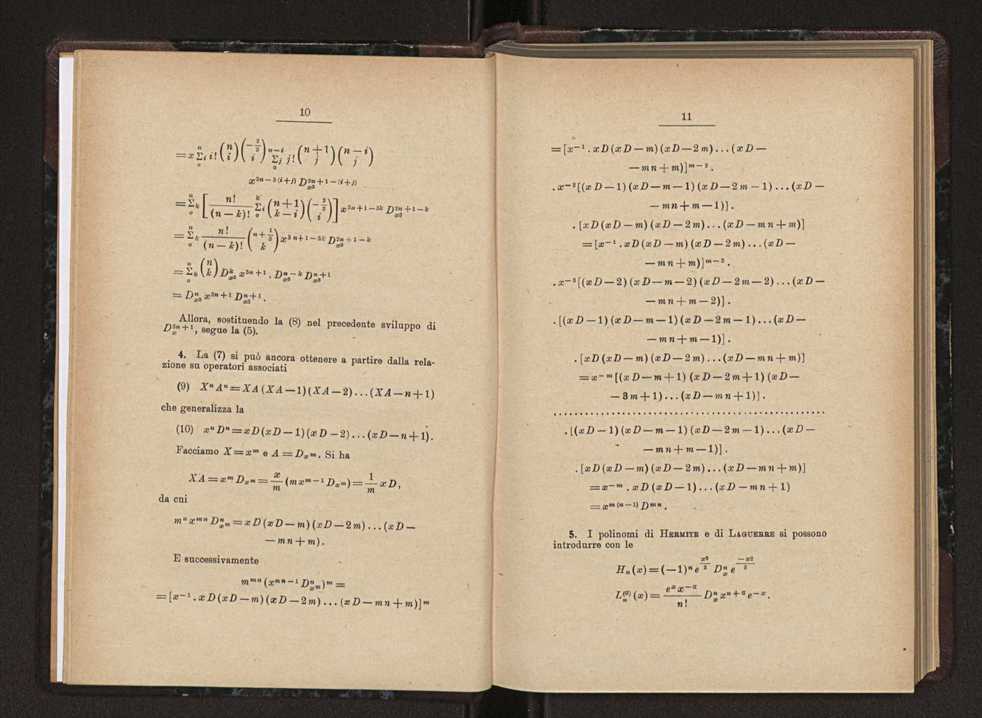 10
= x Σᵢ₀ⁿ i! (n over i) (−2/3 over i) Σⱼ₀ⁿ⁻ⁱ j! (n + 1 over j) (n − i over j)
x^{2n − 3(i+j)} D_{x³}^{2n + 1 − (i+j)}
= Σₖ₀ⁿ [ n! / (n − k)! Σᵢ₀ᵏ (n + 1 over k − i) (−2/3 over i) ] x^{3n + 1 − 3k} D_{x³}^{2n + 1 − k}
= Σₖ₀ⁿ n! / (n − k)! (n + 1/3 over k) x^{3n + 1 − 3k} D_{x³}^{2n + 1 − k}
= Σₖ₀ⁿ (n over k) D_{x³}^k x^{3n + 1} . D_{x³}^{n − k} D_{x³}^{n + 1}
= D_{x³}^n x^{3n + 1} D_{x³}^{n + 1}.
Allora, sostituendo la (8) nel precedente sviluppo di
D_x^{3n + 1}, segue la (5).
4. La (7) si può ancora ottenere a partire dalla rela-
zione su operatori associati
(9) XⁿAⁿ = XA (XA − 1) (XA − 2) . . . (XA − n + 1)
che generalizza la
(10) xⁿDⁿ = xD (xD − 1) (xD − 2) . . . (xD − n + 1).
Facciamo X = x^m e A = D_{x^m}. Si ha
XA = x^m D_{x^m} = x/m (mx^{m − 1} D_{x^m}) = 1/m xD,
da cui
mⁿ x^{mn} D_{x^m}^n = xD (xD − m) (xD − 2m) . . . (xD −
− mn + m).
E successivamente
m^{mn} (x^{mn − 1} D_{x^m}^n)^m =
= [x⁻¹ . xD (xD − m) (xD − 2m) . . . (xD − mn + m)]^m
11
= [x⁻¹ . xD (xD − m) (xD − 2m) . . . (xD −
− mn + m)]^{m − 2} .
. x⁻²[(xD − 1) (xD − m − 1) (xD − 2m − 1) . . . (xD −
− mn + m − 1)] .
. [xD (xD − m) (xD − 2m) . . . (xD − mn + m)]
= [x⁻¹ . xD (xD − m) (xD − 2m) . . . (xD −
− mn + m)]^{m − 3} .
. x⁻³[(xD − 2) (xD − m − 2) (xD − 2m − 2) . . . (xD −
− mn + m − 2)] .
. [(xD − 1) (xD − m − 1) (xD − 2m − 1) . . . (xD −
− mn + m − 1)] .
. [xD (xD − m) (xD − 2m) . . . (xD − mn + m)]
= x^{−m} [(xD − m + 1) (xD − 2m + 1) (xD −
− 3m + 1) . . . (xD − mn + 1)] .
. . . . . . . . . . . . . . . . . . . . . . . . . . . . . . . . . . . . . . . . . .
. [(xD − 1) (xD − m − 1) (xD − 2m − 1) . . . (xD −
− mn + m − 1)] .
. [xD (xD − m) (xD − 2m) . . . (xD − mn + m)]
= x^{−m} . xD (xD − 1) . . . (xD − mn + 1)
= x^{m(n−1)} D^{mn} .
5. I polinomi di HERMITE e di LAGUERRE si possono
introdurre con le
Hₙ (x) = (−1)ⁿ e^{x²/2} D_x^n e^{−x²/2}
Lₙ^{(α)} (x) = eˣ x^{−α} / n! D_x^n x^{n + α} e^{−x}.